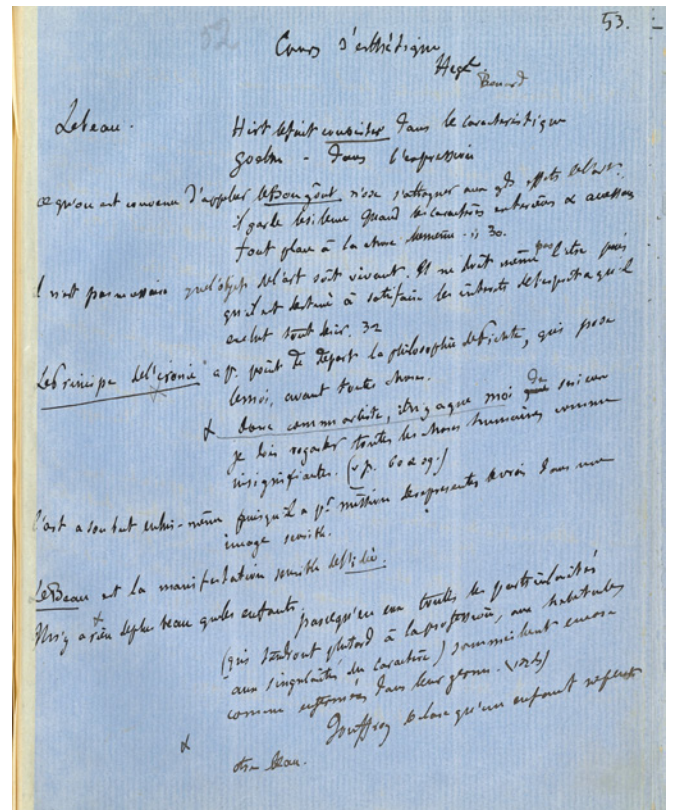 52
53.
Cours d'esthétique
Hegel
Benard
Le beau.
Hirt le fait consister dans le caractéristique
Goethe - dans l'expression
ce qu'on est convenu d'appeler le Bon goût n'ose s'attaquer aux gds effets de l'art.
il garde le silence quand les caractères extérieurs & accessoires
font place à la chose elle même. 30.
il n'est pas nécessaire que l'objet de l'art soit vivant. Il ne doit même pas l'être puis
qu'il est destiné à satisfaire les intérêts de l'esprit & qu'il
exclut tout désir. 32
Le Principe de l'ironie a pr point de départ la philosophie de Fichte, qui pose
le moi, avant toute chose.
& donc comme artiste, il n'y a que moi de
je dois regarder toutes les choses humaines comme
insignifiantes. (v p. 60 & sq.)
l'art a son but en lui-même puisqu'il a pr mission de représenter le vrai dans une
image sensible.
Le Beau est la manifestation sensible de l'idée.
Il n'y a rien de plus beau que les enfants
parce qu'en eux toutes les particularités
(qui tendront plus tard à la profession, aux habitudes
aux singularités du caractère) sommeillent encore
comme enfermées dans leur germe.
&
Jouffroy qu'un enfant
être beau.